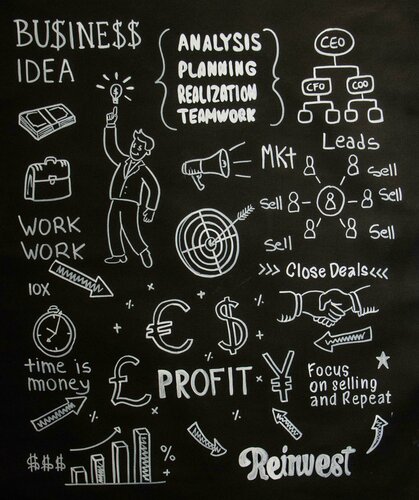 BU$INE$$
IDEA
ANALYSIS
PLANNING
REALIZATION
TEAMWORK
CEO
CFO
COO
MKt
Leads
Sell
Sell
Sell
Sell
WORK
WORK
>>> Close Deals <<<
10X
€
$
%
+
%
+
+
%
time is
money
£
PROFIT
×
¥
Focus
on selling
and Repeat
%
+
%
$$$
%
+
Reinvest